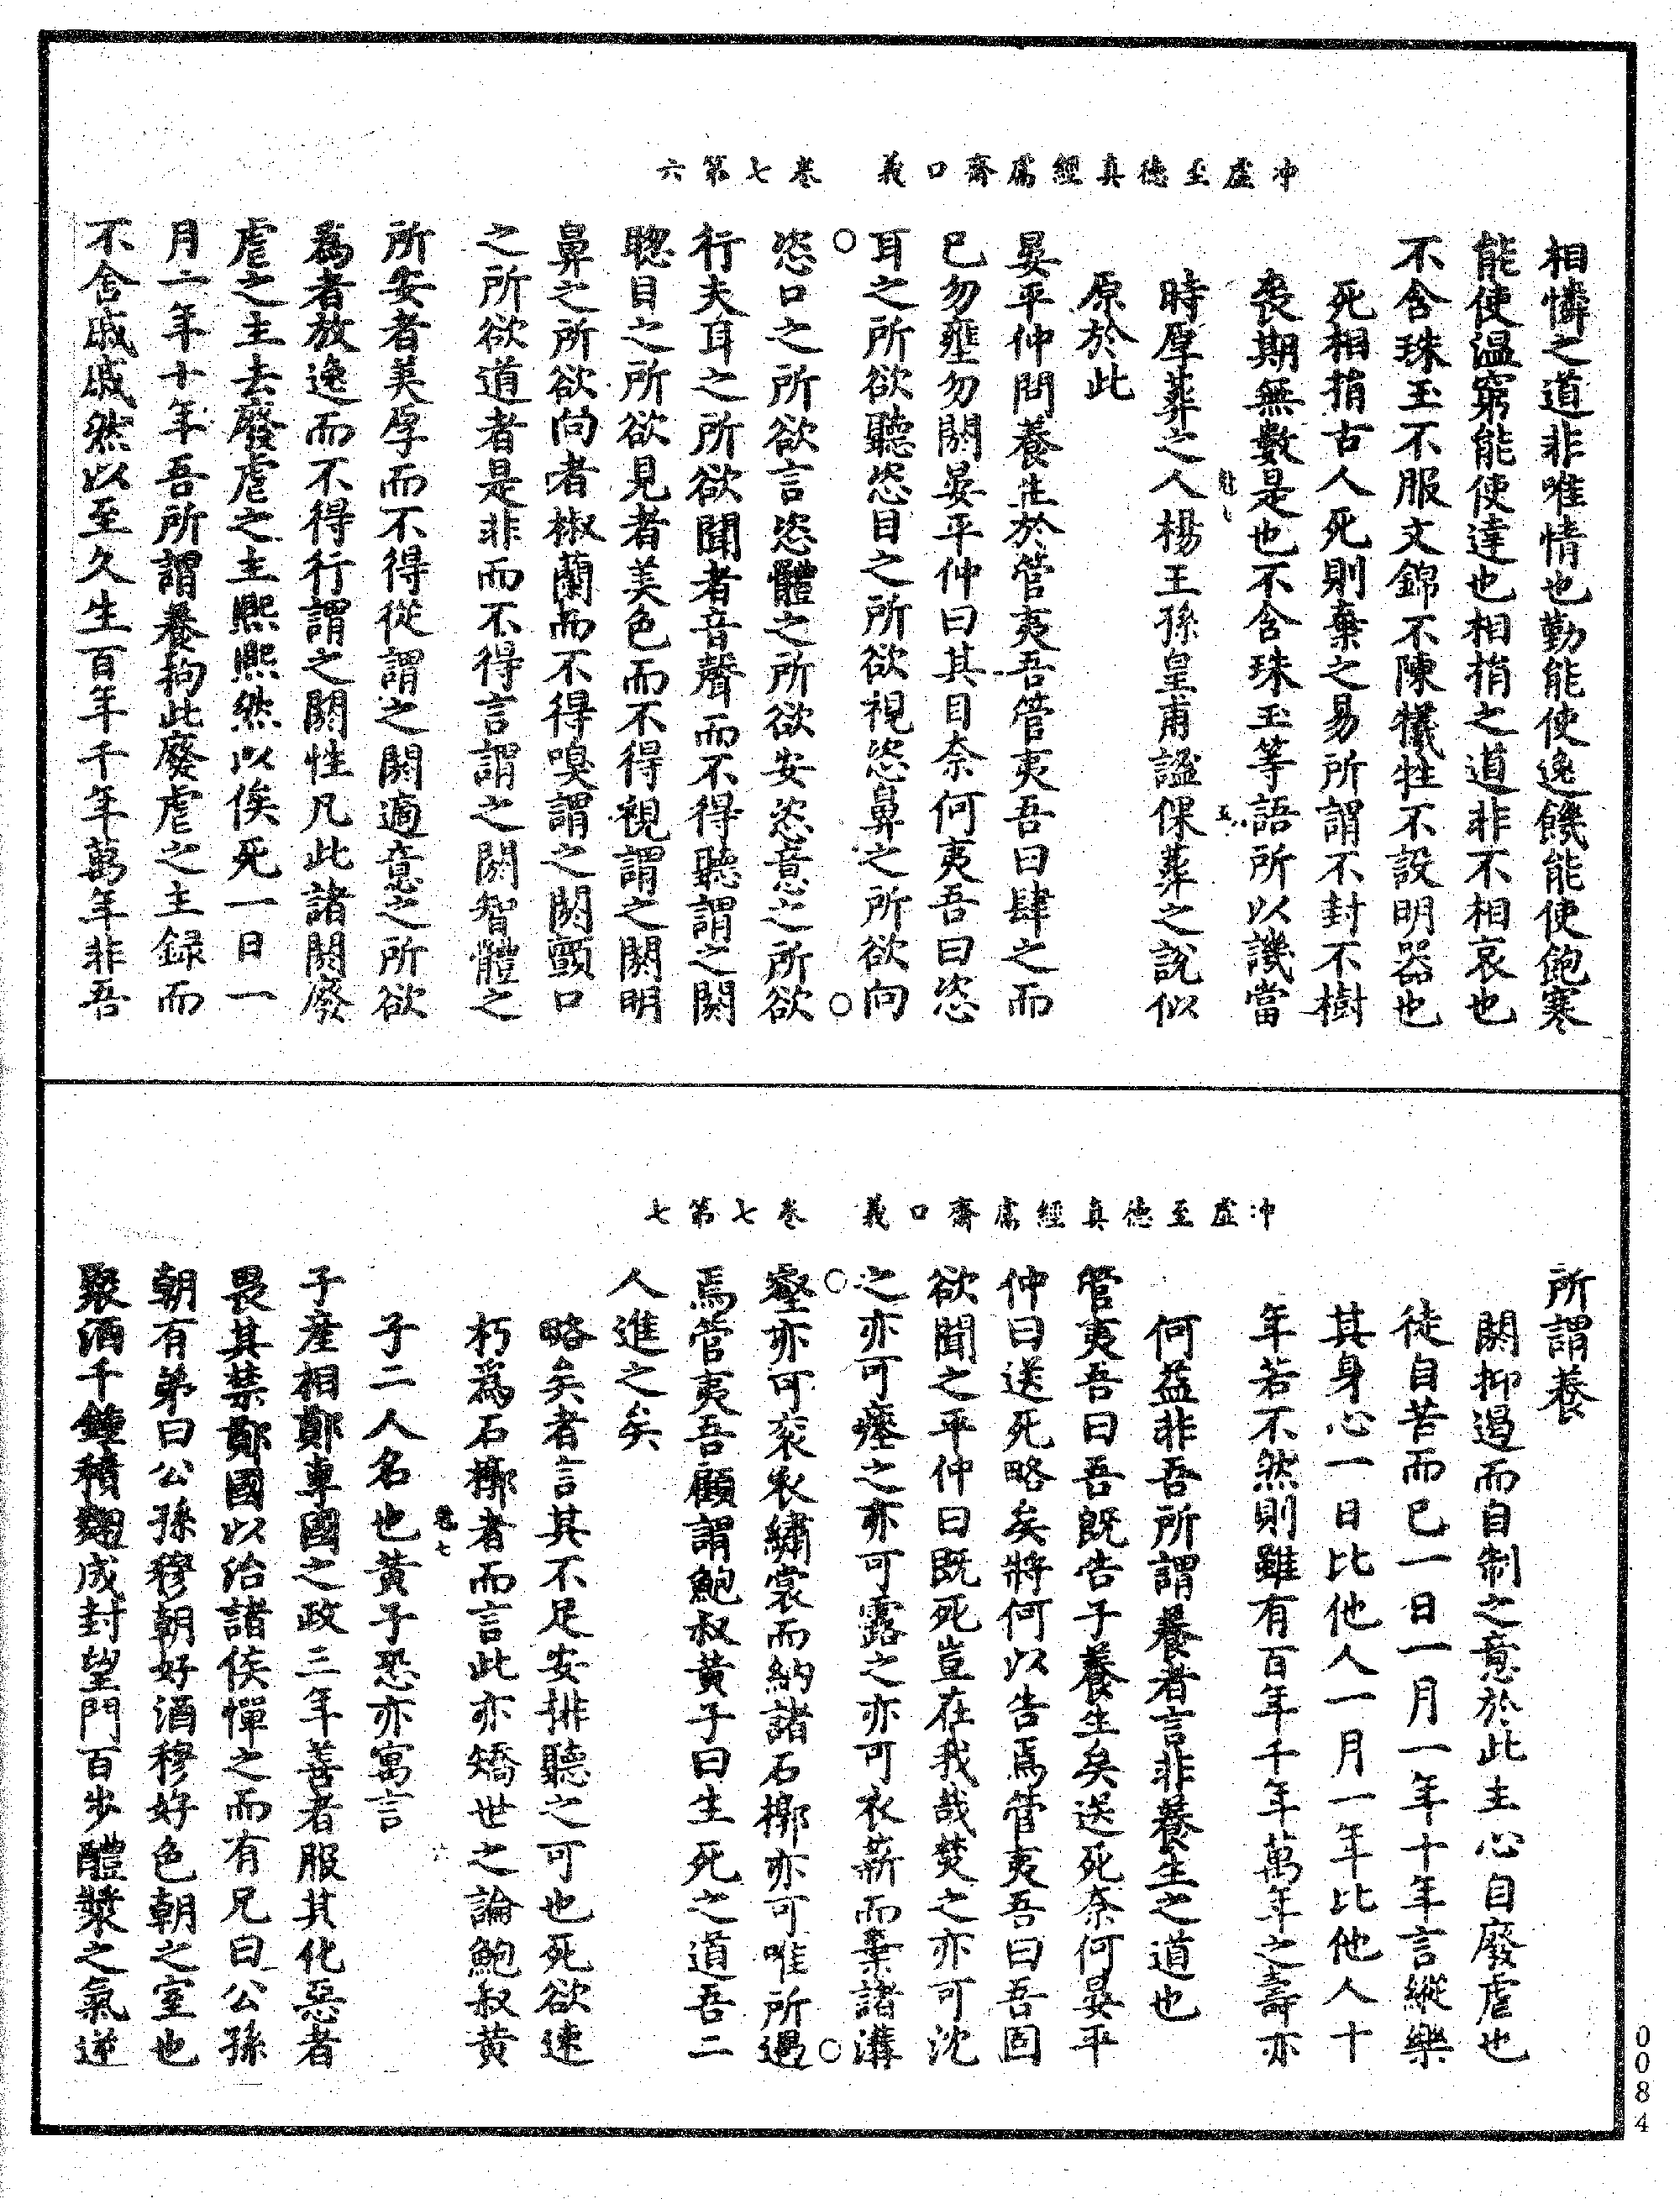 冲虛至德真經鬳齋口義　卷七第六
相憐之道非唯情也勤能使逸饑能使飽寒
能使温窮能使達也相捐之道非不相哀也
不含珠玉不服文錦不陳犧牲不設明器也
死相捐古人死則棄之易所謂不封不樹
喪期無數是也不含珠玉等語所以譏當
時厚葬之人楊王孫皇甫謐倮葬之說似
原於此
晏平仲問養生於管夷吾管夷吾曰肆之而
已勿壅勿閼晏平仲曰其目奈何夷吾曰恣
耳之所欲聽恣目之所欲視恣鼻之所欲向
恣口之所欲言恣體之所欲安恣意之所欲
行夫耳之所欲聞者音聲而不得聽謂之閼
聦目之所欲見者美色而不得視謂之閼明
鼻之所欲向者椒蘭而不得嗅謂之閼顫口
之所欲道者是非而不得言謂之閼智體之
所安者美厚而不得從謂之閼適意之所欲
爲者放逸而不得行謂之閼性凡此諸閼廢
虐之主去廢虐之主熙熙然以俟死一日一
月一年十年吾所謂養拘此廢虐之主録而
不舍戚戚然以至久生百年千年萬年非吾
冲虛至德真經鬳齋口義　卷七第七
所謂養
閼抑遏而自制之意於此主心自廢虐也
徒自苦而已一日一月一年十年言縱樂
其身心一日比他人一月一年比他人十
年若不然則雖有百年千年萬年之壽亦
何益非吾所謂養者言非養生之道也
管夷吾曰吾既告子養生矣送死奈何晏平
仲曰送死略矣將何以告焉管夷吾曰吾固
欲聞之平仲曰既死豈在我哉焚之亦可沈
之亦可瘞之亦可露之亦可衣薪而棄諸溝
壑亦可衮衣繡裳而納諸石槨亦可唯所遇
焉管夷吾顧謂鮑叔黄子曰生死之道吾二
人進之矣
略矣者言其不足安排聽之可也死欲速
朽爲石槨者而言此亦矯世之論鮑叔黄
子二人名也黄子恐亦寓言
子產相鄭專國之政三年善者服其化惡者
畏其禁鄭國以治諸侯憚之而有兄曰公孫
朝有弟曰公孫穆朝好酒穆好色朝之室也
聚酒千鍾積麴成封望門百步醴漿之氣逆
0084